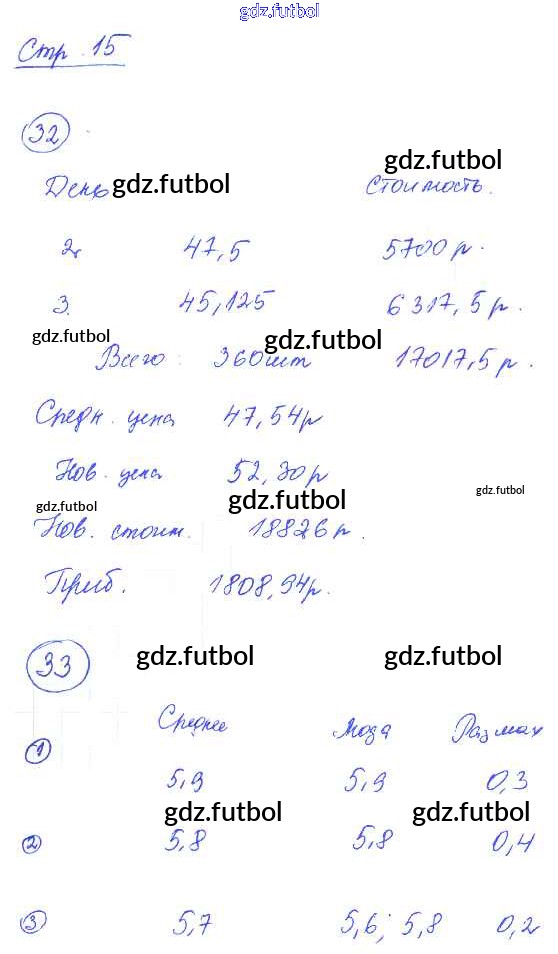 gdz.futbol
Стр. 15
32
gdz.futbol
День gdz.futbol Стоимость.
2. 47,5 5700 р.
3. 45,125 6317,5 р.
gdz.futbol gdz.futbol
Всего: 360 шт 17017,5 р.
Средн. цена 47,54 р
Нов. цена 52,30 р
gdz.futbol gdz.futbol gdz.futbol
Нов. стоим. 18826 р.
Приб. 1808,94 р.
33 gdz.futbol gdz.futbol
Среднее Мода Размах
1
5,9 5,9 0,3
gdz.futbol gdz.futbol
2 5,8 5,8 0,4
3 5,7 5,6; 5,8 0,2